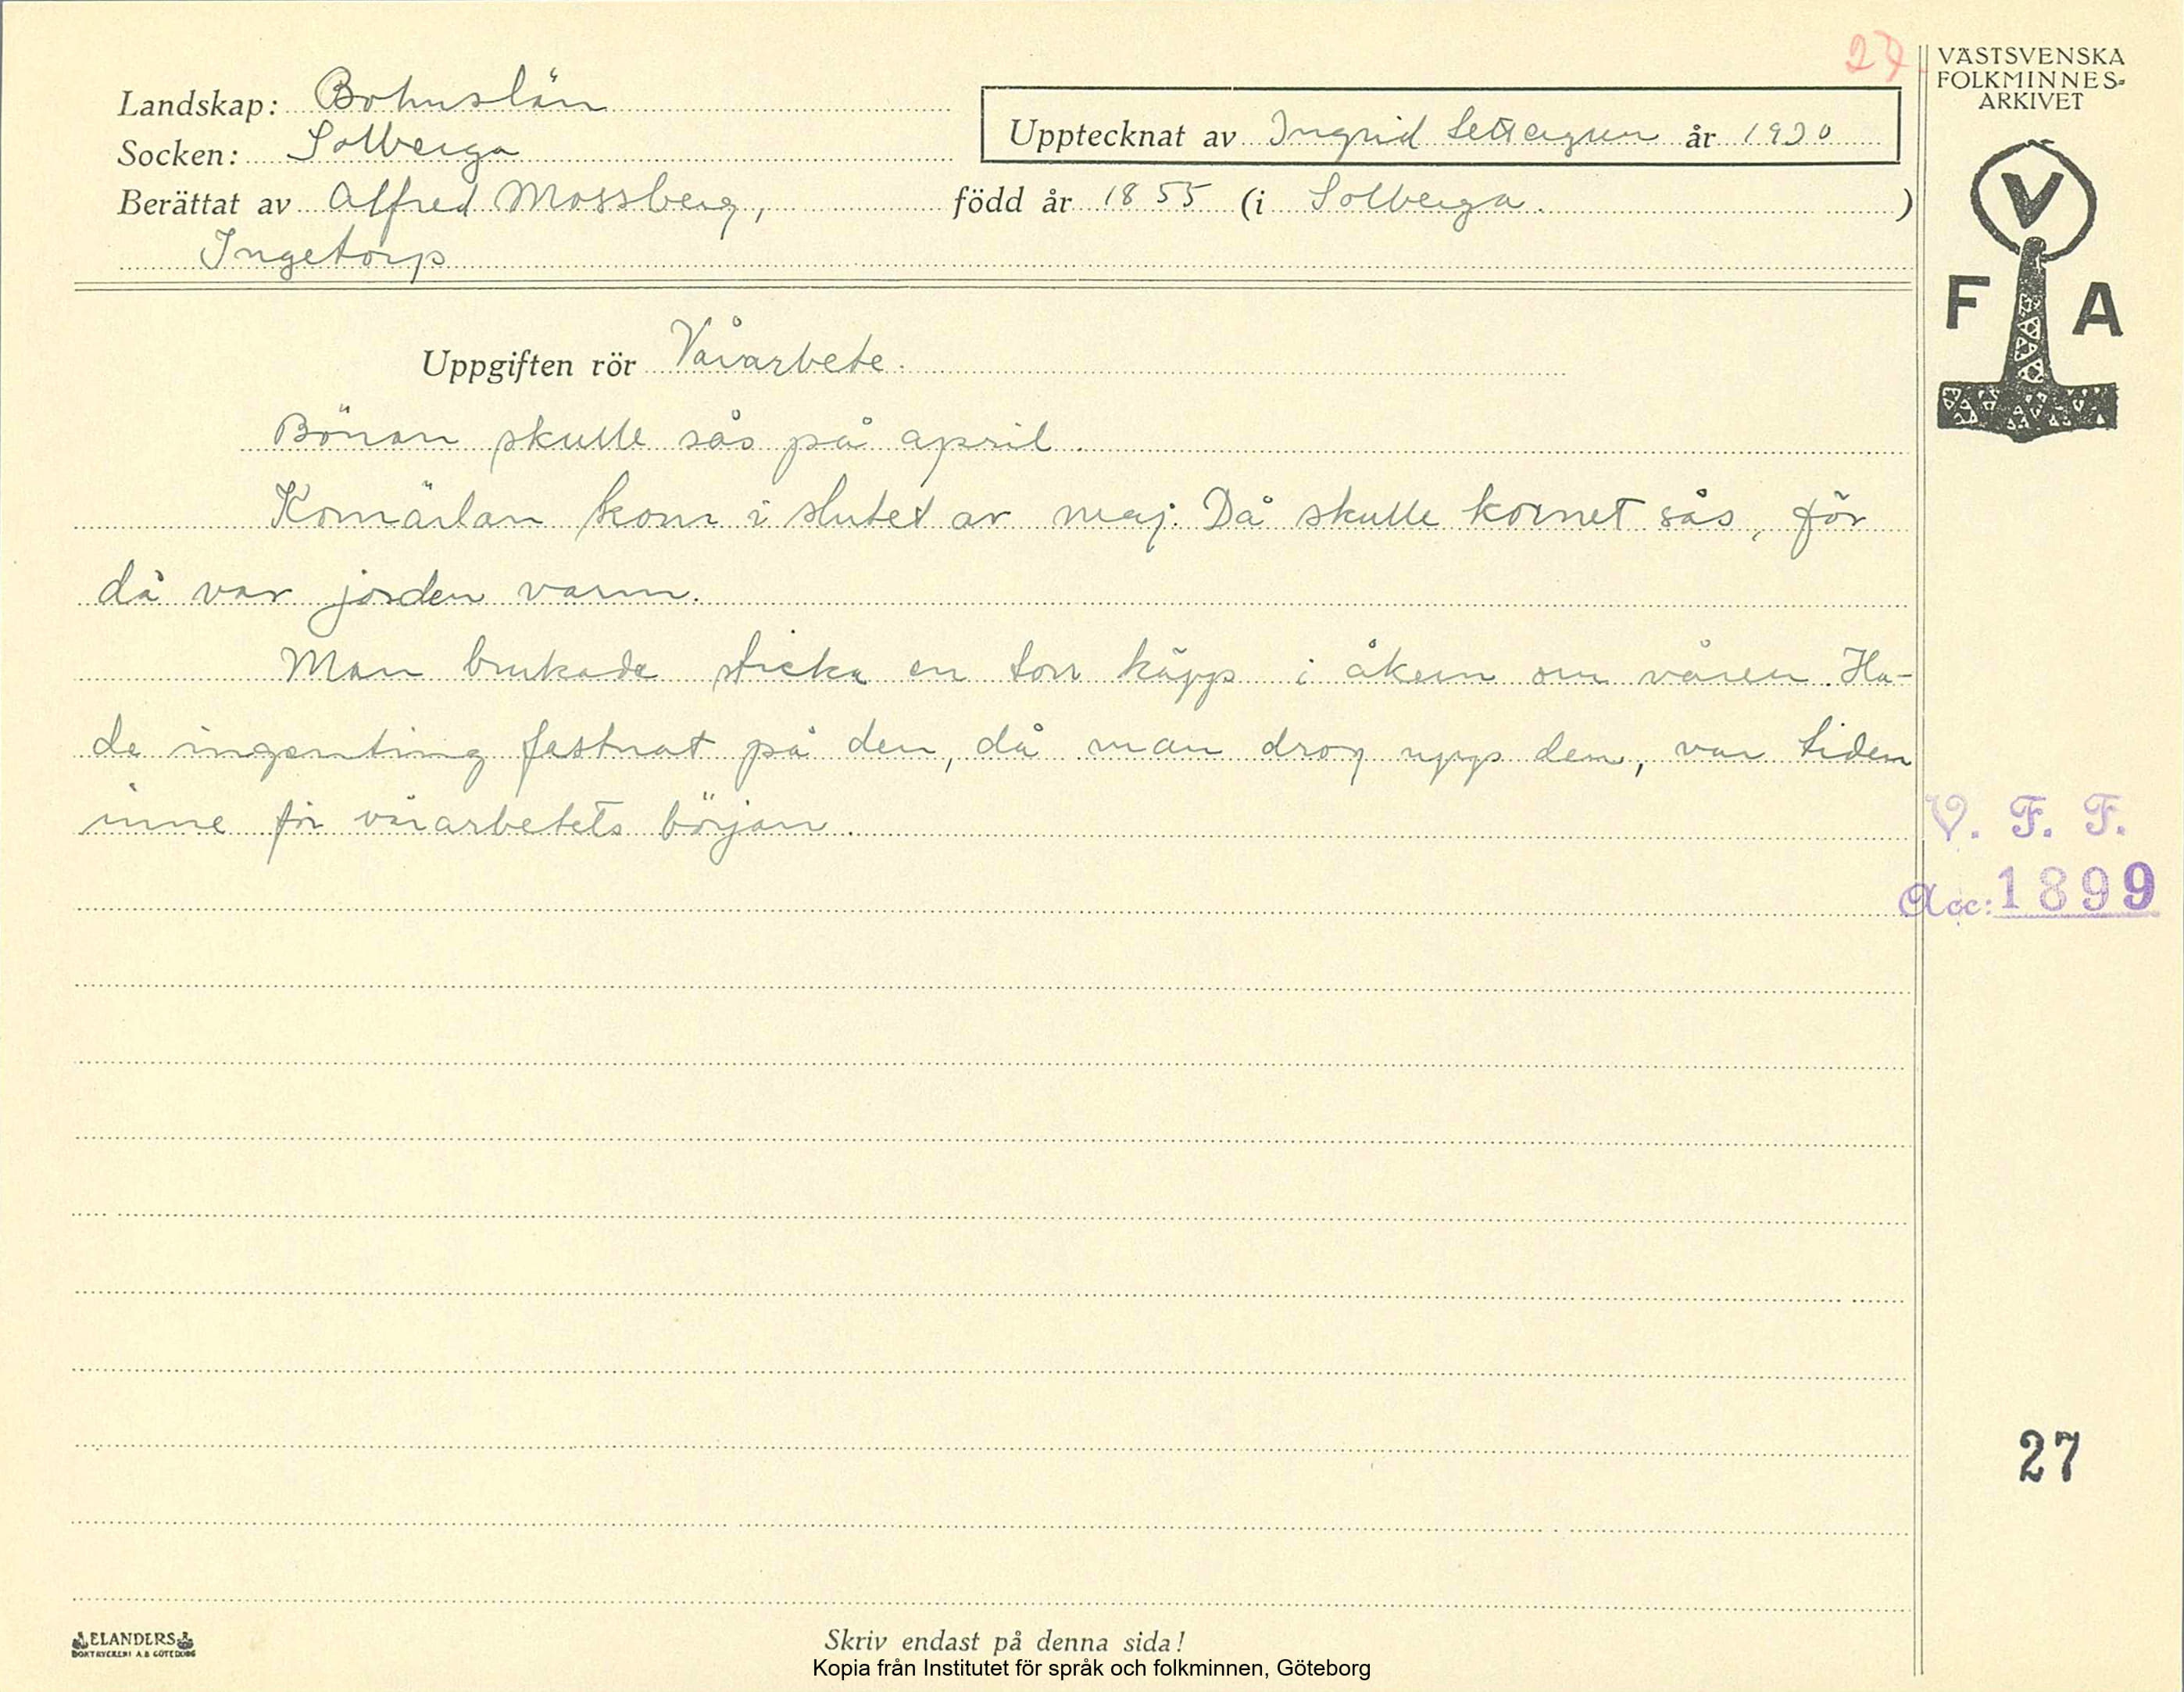 27
VÄSTSVENSKA
FOLKMINNES-
ARKIVET
Landskap: Bohuslän
Socken: Solberga
Upptecknat av Ingrid Settergren år 1930
Berättat av Alfred Mossberg, född år 1855 (i Solberga. )
Ingetorp
V
F A
Uppgiften rör Vårarbete.
Bönan skulle sås på april.
Komärlan kom i slutet av maj. Då skulle kornet sås, för
då var jorden varm.
Man brukade sticka en torr käpp i åkern om våren. Ha-
de ingenting fastnat på den, då man drog upp den, var tiden
inne för vårarbetets början.
V. F. F.
Acc: 1899
27
ELANDERS
BOKTRYCKERI A.B. GÖTEBORG
Skriv endast på denna sida!
Kopia från Institutet för språk och folkminnen, Göteborg